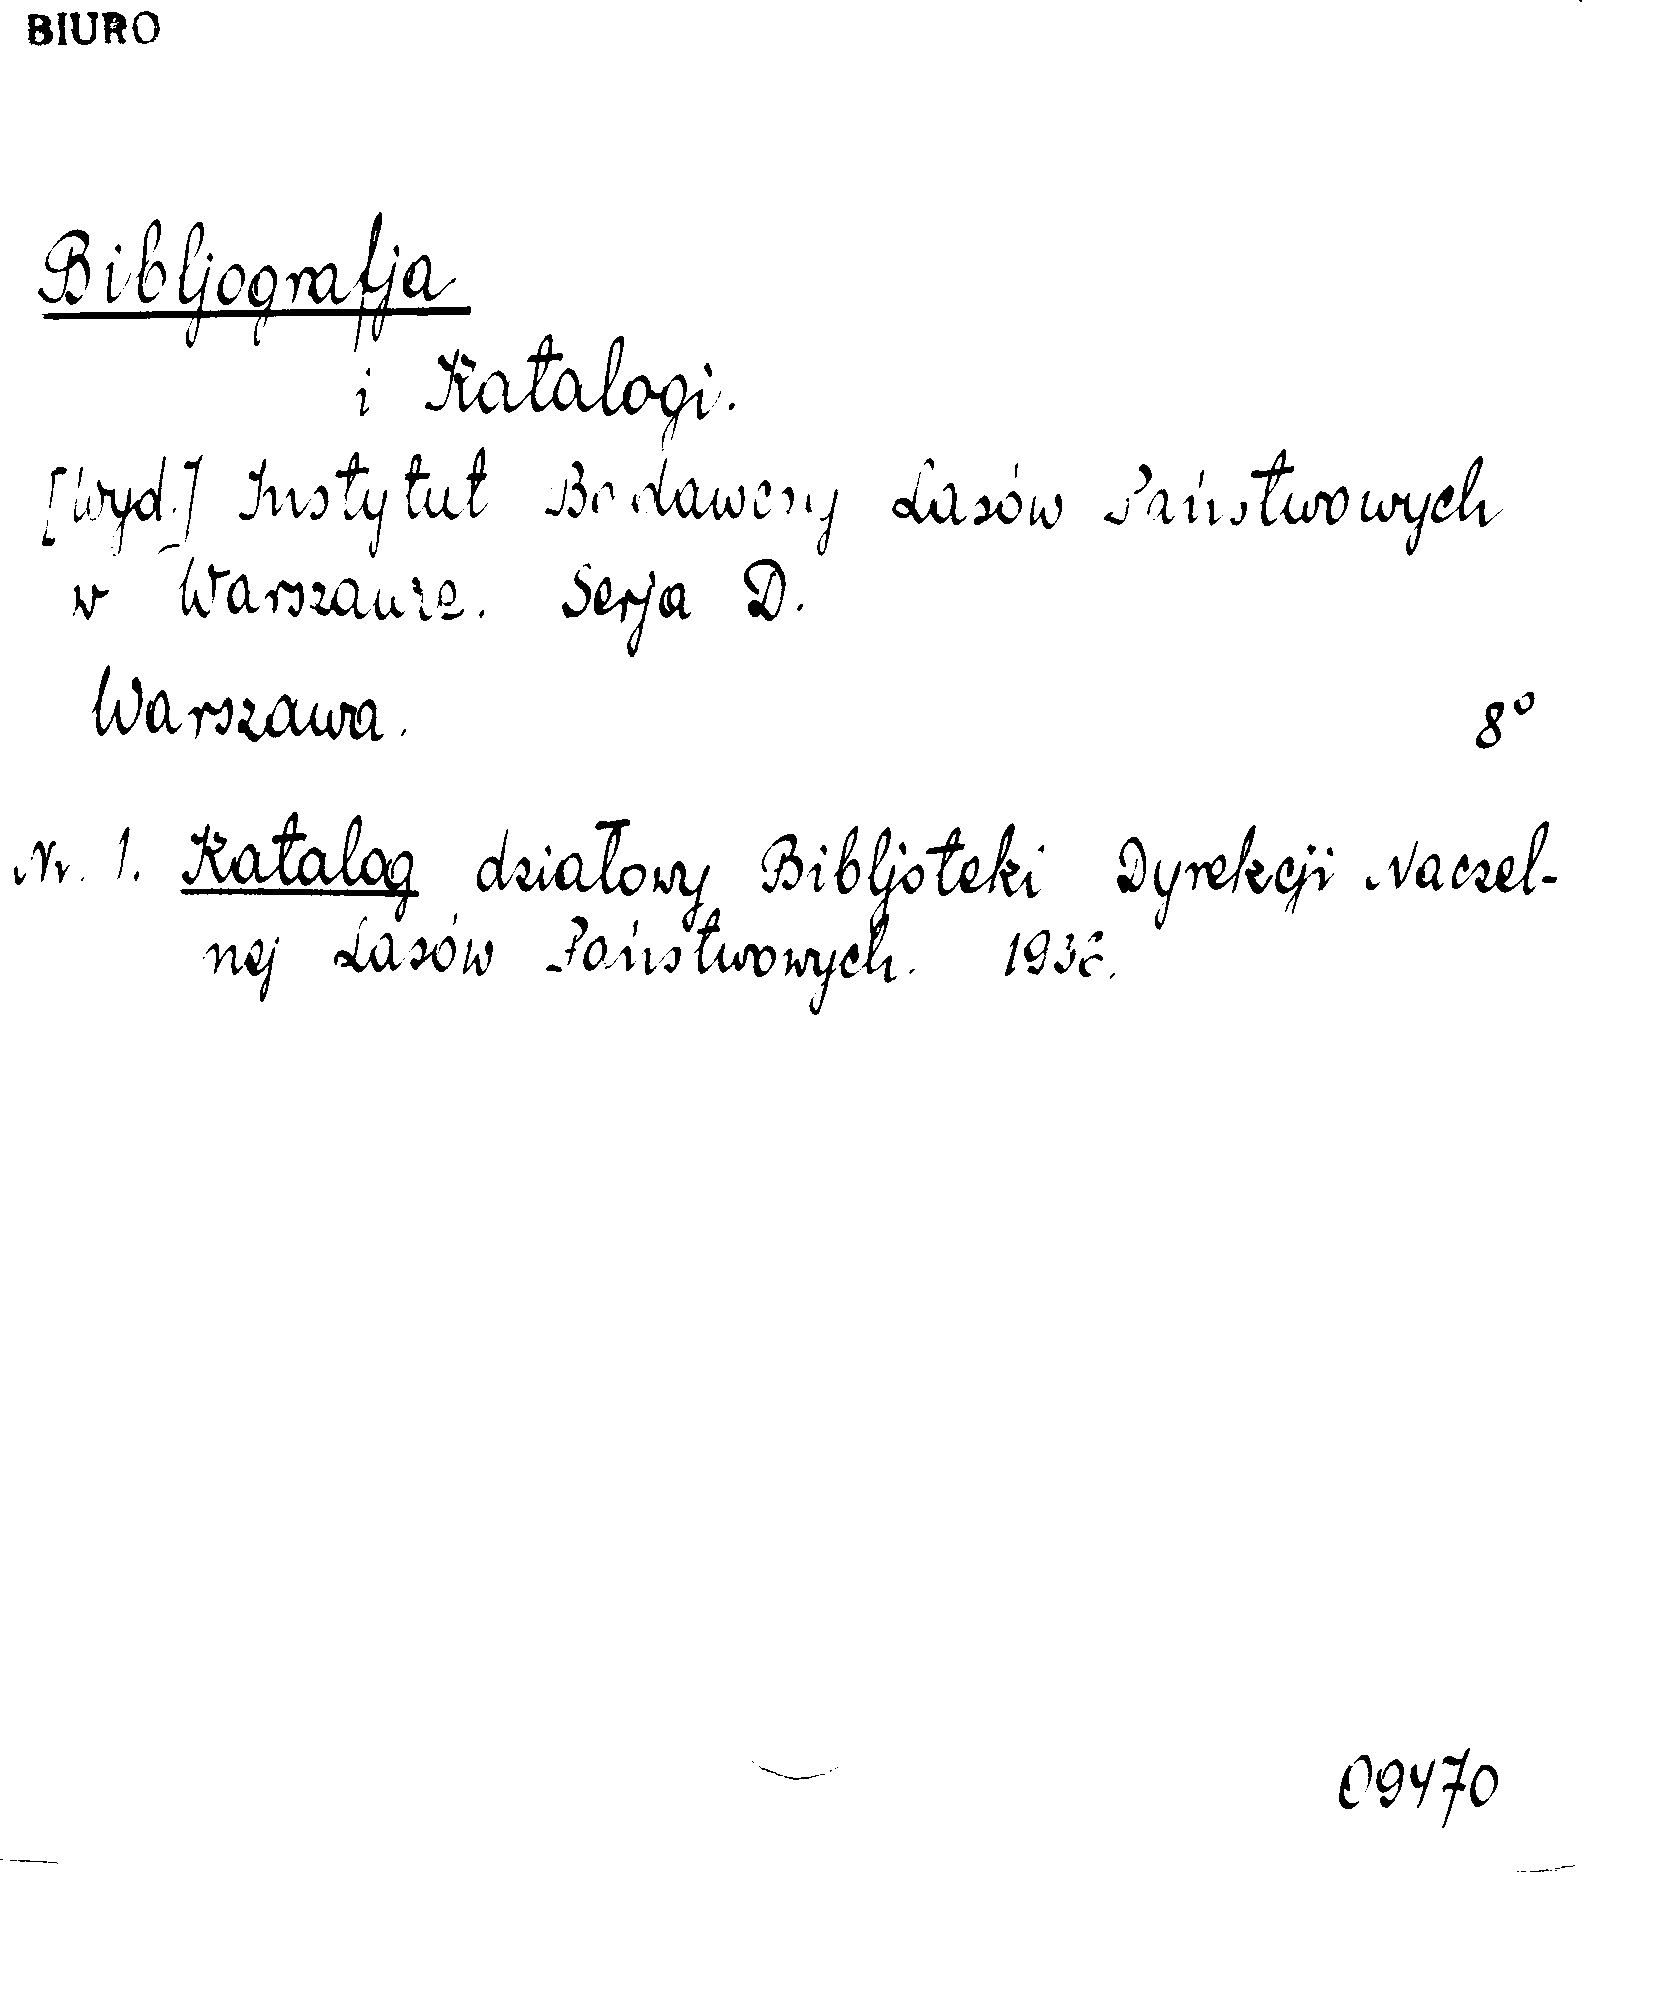 BIURO
Bibljografja
i Katalogi.
[Wyd.] Instytut Badawczy Lasów Państwowych
w Warszawie. Serja D.
Warszawa. 8°
Nr. 1. Katalog działowy Bibljoteki Dyrekcji Naczel-
nej Lasów Państwowych. 1936.
09470